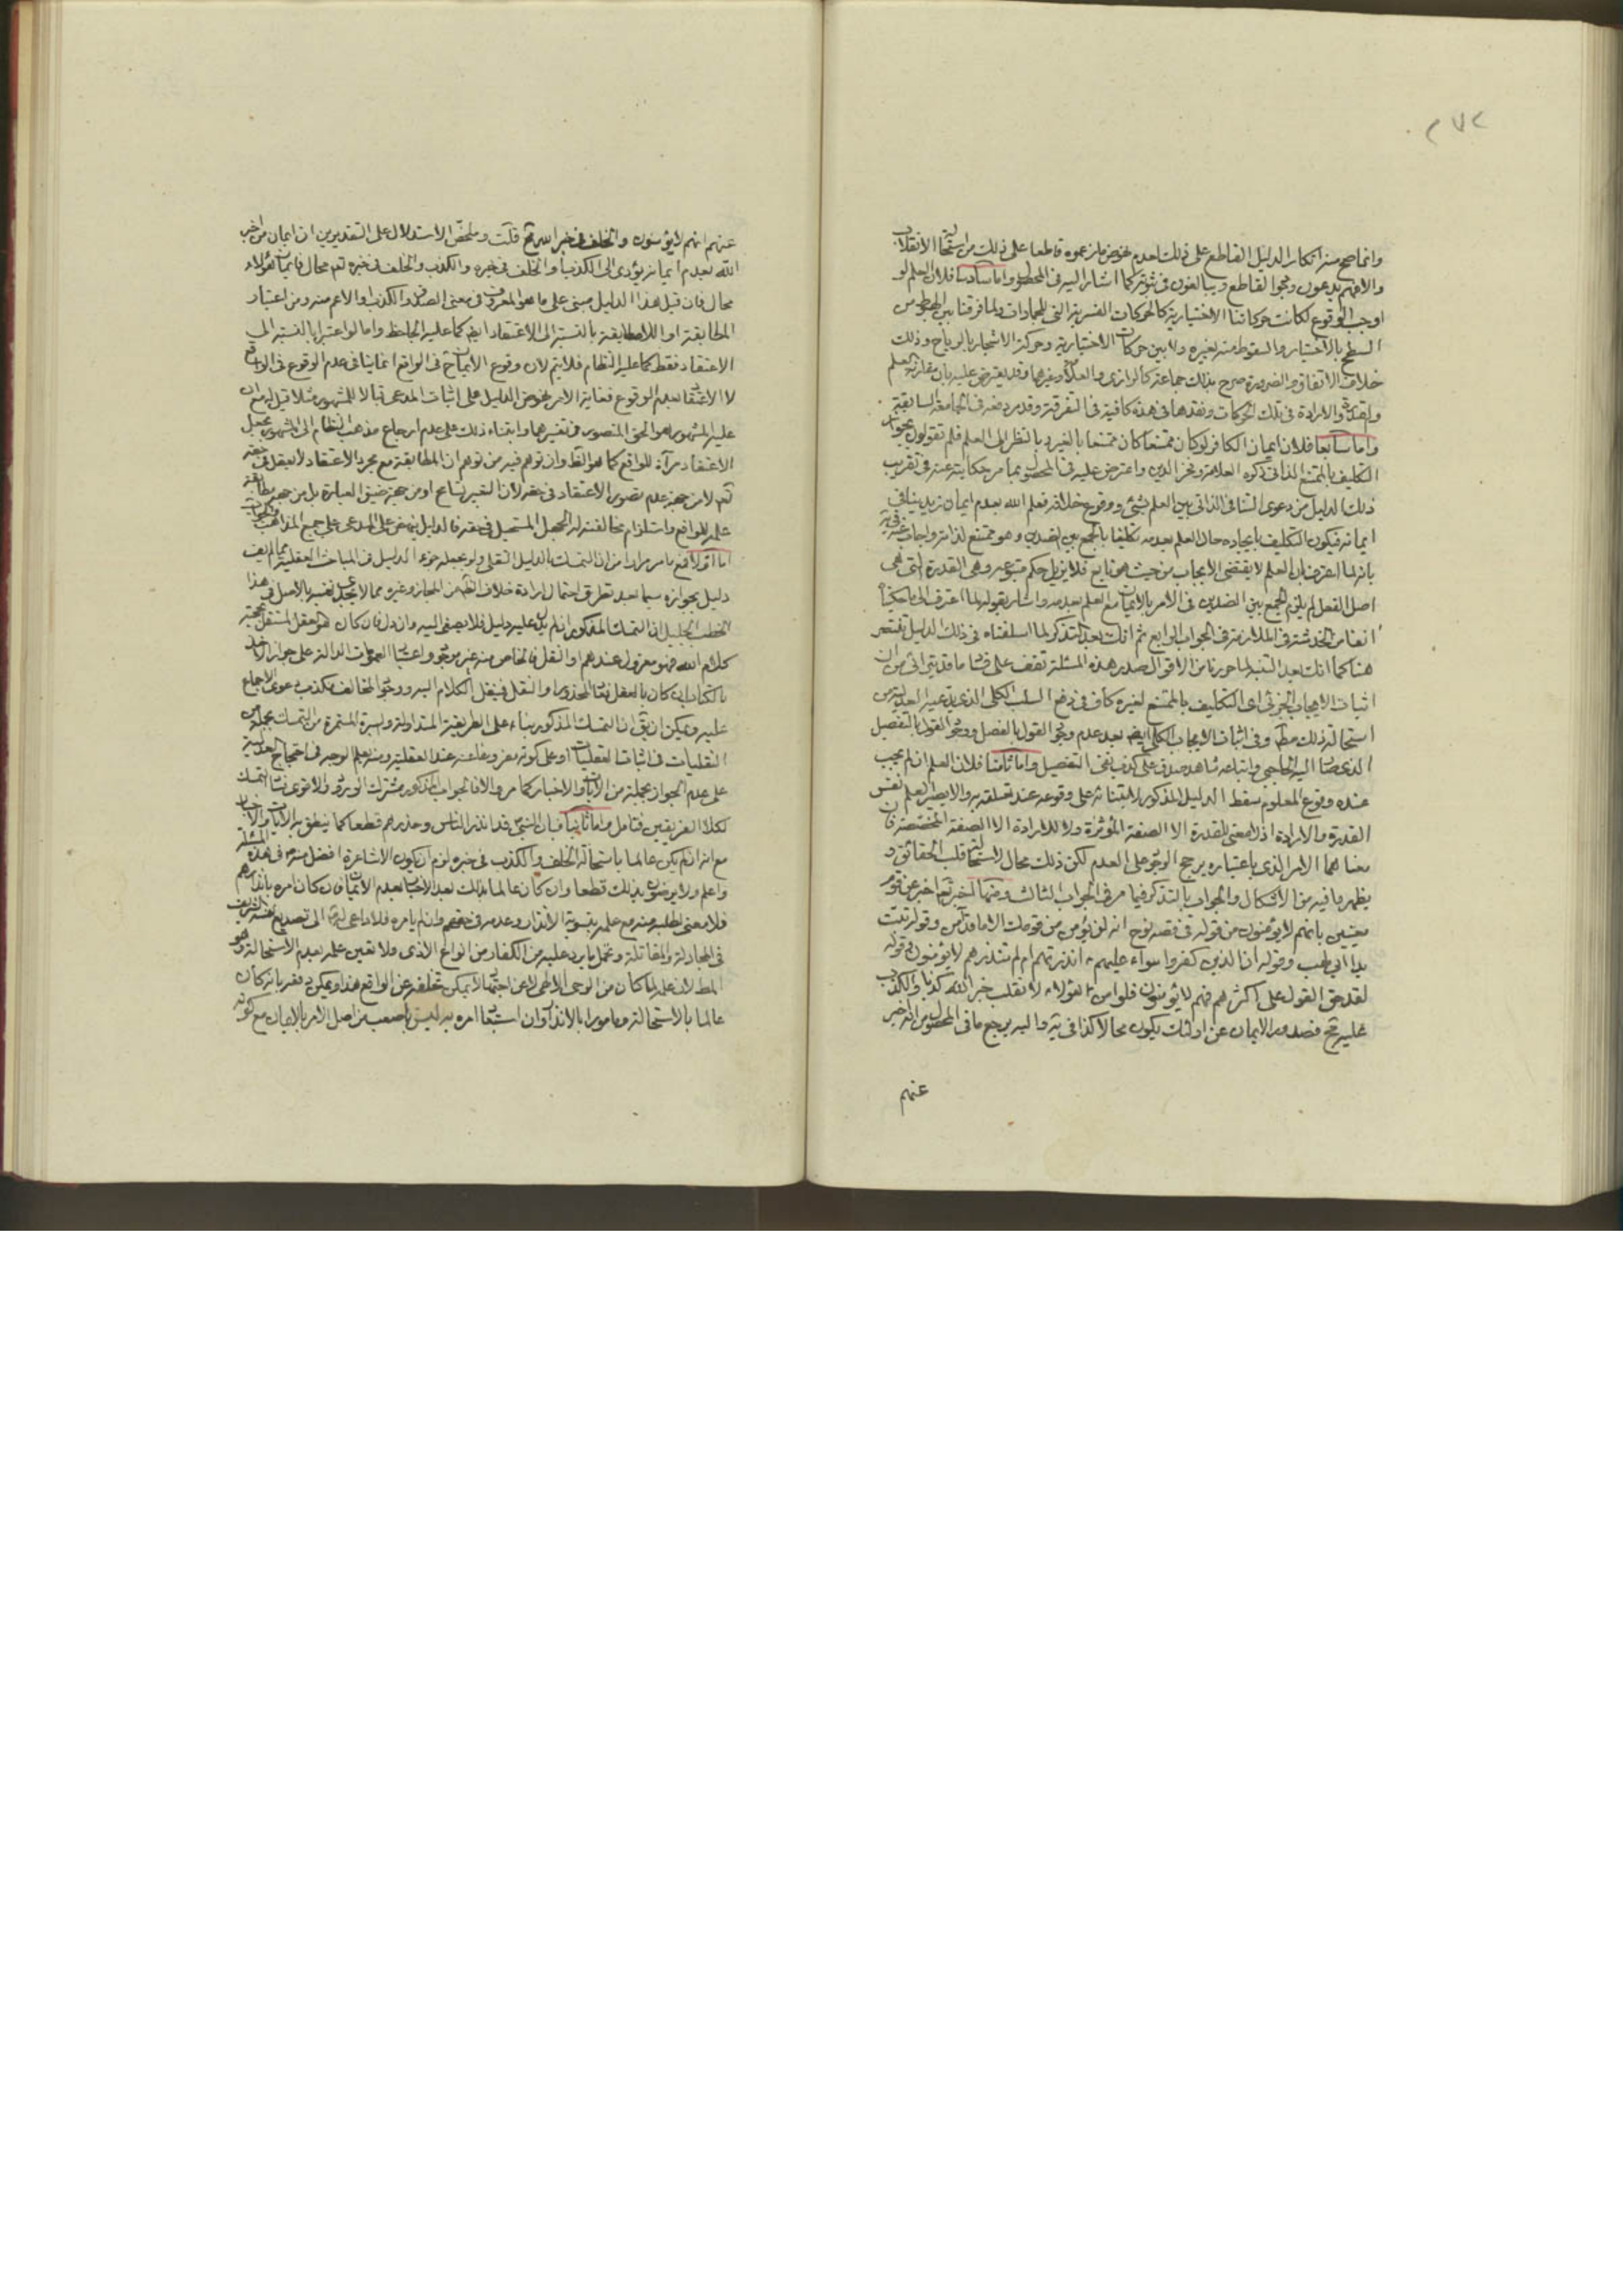 ٢٧٢
وانما صح منه انكار الدليل القاطع على ذلك لعدم نهوض ما زعموه قاطعا على ذلك من استحالة الانقلاب
والا فهم يدعون وجود القاطع ويبالغون في ثبوته كما اشار اليه في المحصول واما سادسا فلان العلم لو
اوجب الوقوع لكانت حركاتنا الاختيارية كالحركات القسرية التي للجمادات ولما فرقنا بين الهبوط من
السطح بالاختيار والسقوط منه بغيره ولا بين حركات الاختيارية وحركة الاشجار بالرياح وذلك
خلاف الاتفاق والضرورة صرح بذلك جماعة كالرازي والعلامة وغيرهما وقد يعترض عليه بان مقارنة العلم
والقدرة والارادة في تلك الحركات وفقدها في هذه كافية في التفرقة وقد مر دفعه في الجامعة السابقة
واما سابعا فلان ايمان الكافر لو كان ممتنعا كان ممتنعا بالغير وبالنظر الى العلم فلم تقولون بجواز
التكليف بالممتنع الذاتي ذكره العلامة وفخر الدين واعترض عليه في المحصول بما مر حكايته عنه في تقريب
ذلك الدليل من دعوى التنافي الذاتي بين العلم بشئ ووقوع خلافه فعلم الله بعدم ايمان زيد ينافي
ايمانه فيكون التكليف بايجاده حال العلم بعدمه تكليفا بالجمع بين الضدين وهو ممتنع لذاته واجاب عنه في
بانه لما اعترف بان العلم لا يقتضي الايجاب من حيث هو تابع فلا يزيل حكم متبوعه وهي القدرة التي هي
اصل الفعل لم يلزم الجمع بين الضدين في الامر بالايمان مع العلم بعدمه واشار بقوله لما اعترف الى ما حكيناه
آنفا من الخدشة في الملازمة في الجواب الرابع ثم انك بعد التذكر لما اسلفناه في ذلك الدليل تقتصر
هنا كما انك بعد التنبه لما حررنا من الاقوال صدر هذه المسئلة تقف على فساد ما قد يتراءى من ان
اثبات الايجاب الجزئي اى التكليف بالممتنع لغيره كاف في دفع السلب الكلي الذي يدعيه العدلية من
استحالة ذلك مط وفي اثبات الايجاب الكلي ايضا بعد عدم وجود القول بالفصل ووجود القول بالتفصيل
الذي صار اليه الحاجبي واتباعه شاهد صدق على كذب نفي التفصيل واما ثامنا فلان العلم ان لم يجب
عنده وقوع المعلوم سقط الدليل المذكور لابتنائه على وقوعه عند تعلقه به والا يصير العلم نفس
القدرة والارادة اذ لا معنى للقدرة الا الصفة المؤثرة ولا للارادة الا الصفة المخصصة فان
معناهما الامر الذي باعتباره يرجح الوجود على العدم لكن ذلك محال لاستحالة قلب الحقائق و
يظهر ما فيه من الاشكال والجواب بالتذكر فيما مر في الجواب الثالث ومنها انه تعالى اخبر عن قوم
معينين بانهم لا يؤمنون من قوله في قصة نوح انه لن يؤمن من قومك الا من قد آمن وقوله تبت
يدا ابي لهب وقوله ان الذين كفروا سواء عليهم ءانذرتهم ام لم تنذرهم لا يؤمنون وقوله
لقد حق القول على اكثرهم فهم لا يؤمنون فلو امن هؤلاء لانقلب خبر الله كذبا والكذب
عليه تع فصدور الايمان عن اولئك يكون محالا كذا في يه واليه يرجع ما في المحصول من انه اخبر
عنهم
عنهم انهم لا يؤمنون والخلف في خبر الله تع قلت وملخص الاستدلال على التقديرين ان ايمان من اخبر
الله بعدم ايمانه يؤدي الى الكذب او الخلف في خبره والكذب والخلف في خبره تعم محال فايمان هؤلاء
محال فان قيل هذا الدليل مبني على ما هو المعروف في معنى الصدق والكذب او الاعم منه ومن اعتبار
المطابقة او اللامطابقة بالنسبة الى الاعتقاد ايضا كما عليه الجاحظ واما لو اعتبرا بالنسبة الى
الاعتقاد فقط كما عليه النظام فلا يتم لان وقوع الايمان ح في الواقع انما ينافي عدم الوقوع في الواقع
لا الاعتقاد بعدم الوقوع فغاية الامر نهوض الدليل على اثبات المدعى قبالا للمشهور مثلا قيل له مع ان
عليه المشهور هو الحق المنصور في تفسيرهما وابتناء ذلك على عدم ارجاع مذهب النظام الى المشهور بجعل
الاعتقاد مرآة للواقع كما هو الظ وان توهم فيه من توهم ان المطابقة مع مجرد الاعتقاد لا يعقل في حقه
تعم لا من جهة عدم تصور الاعتقاد في حقه لان التعبير تسامح او من جهة ضيق العبارة بل من جهة مطابقة
علمه للواقع واستلزام مخالفته له الجهل المستحيل في حقه فالدليل ينهض على المدعى على جميع المذاهب والجواب
اما اولا فبما مر مرارا من ان التمسك بالدليل النقلي ولو بجعله جزء الدليل في المباحث العقلية مما لم يقف
دليل بجوازه سيما بعد تطرق احتمال ارادة خلاف الظ من المجاز وغيره مما لا يجدي نفيه بالاصل في هذا
الخطب الجليل ان التمسك المذكور ان لم يدل عليه دليل فلا يصغى اليه وان دل فان كان هو العقل المستقل بحجية
كلام الله فهو معزول عندهم او النقل فالخاص منه غير موجود واعتبار العمومات الدالة على جواز الاخذ
بالكتاب ان كان بالعقل ثبت المحذور او النقل فينقل الكلام اليه ووجود المخالف مكذب دعوى الاجماع
عليه ويمكن ان يق ان التمسك المذكور بناء على الطريقة المتداولة والسيرة المستمرة من التمسك بجملة من
النقليات في اثبات العقليات او على كونه مفروغا عنه عند العقلية ومنه يعلم الوجه في احتجاج العدلية
على عدم الجواز بجملة من الآيات والاخبار كما مر والا فالجواب المذكور مشترك الورود والاقوى بناء التمسك
لكلا الفريقين فتامل واما ثانيا فبان النبي قد انذر الناس وحذرهم قطعا كما ينطق به الآيات والاخبار
مع انه ان لم يكن عالما باستحالة الخلف والكذب في خبره لزم ان يكون الاشاعرة افضل منه في هذه المسئلة
واعلم ولا يرضون بذلك قطعا وان كان عالما بذلك بعد الاخبار بعدم الايمان فان كان امره بانذارهم
فلا معنى لطلبه منه مع علمه بتسوية الانذار وعدمه في حقهم وان لم يامره فلا داعي له الى تصديع نفسه الشريف
في المجادلة والمقاتلة وتحمل ما يرد عليه من الكفار من انواع الاذى فلا تعين علمه بعدم الاستحالة وهو
المط لان علمه لما كان من الوحي الالهي لا عن اجتهاد لا يمكن تخلفه عن الواقع هذا ويمكن دفعه بانه كان
عالما بالاستحالة ومامورا بالانذار وان استبعاد امره به ليس باصعب من اصل الامر بالايمان مع كونه